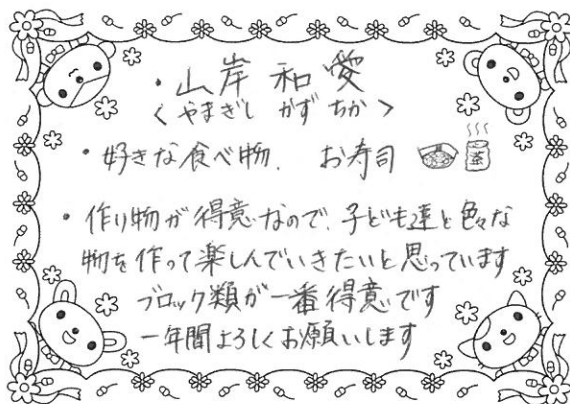 ・山岸 和愛
<やまぎし かず ちか>
・好きな食べ物、 お寿司
茶
・作り物が得意なので、子ども達と色々な
物を作って楽しんでいきたいと思っています
ブロック類が一番得意です
一年間よろしくお願いします